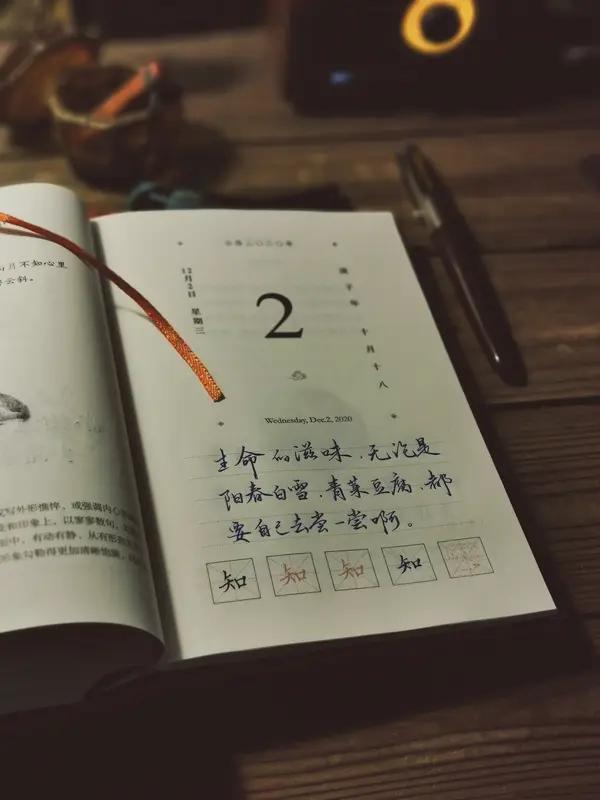 月不知心里
云斜。
写外形憔悴，或强调内心
和印象上，以寥寥数句，
中，有动有静，从有形
形象勾勒得更加清晰饱满，
公历二〇二〇年
12月2日 星期三
庚子年 十月十八
2
Wednesday, Dec.2, 2020
生命的滋味，无论是
阳春白雪，青菜豆腐，都
要自己去尝一尝啊。
知 知 知 知